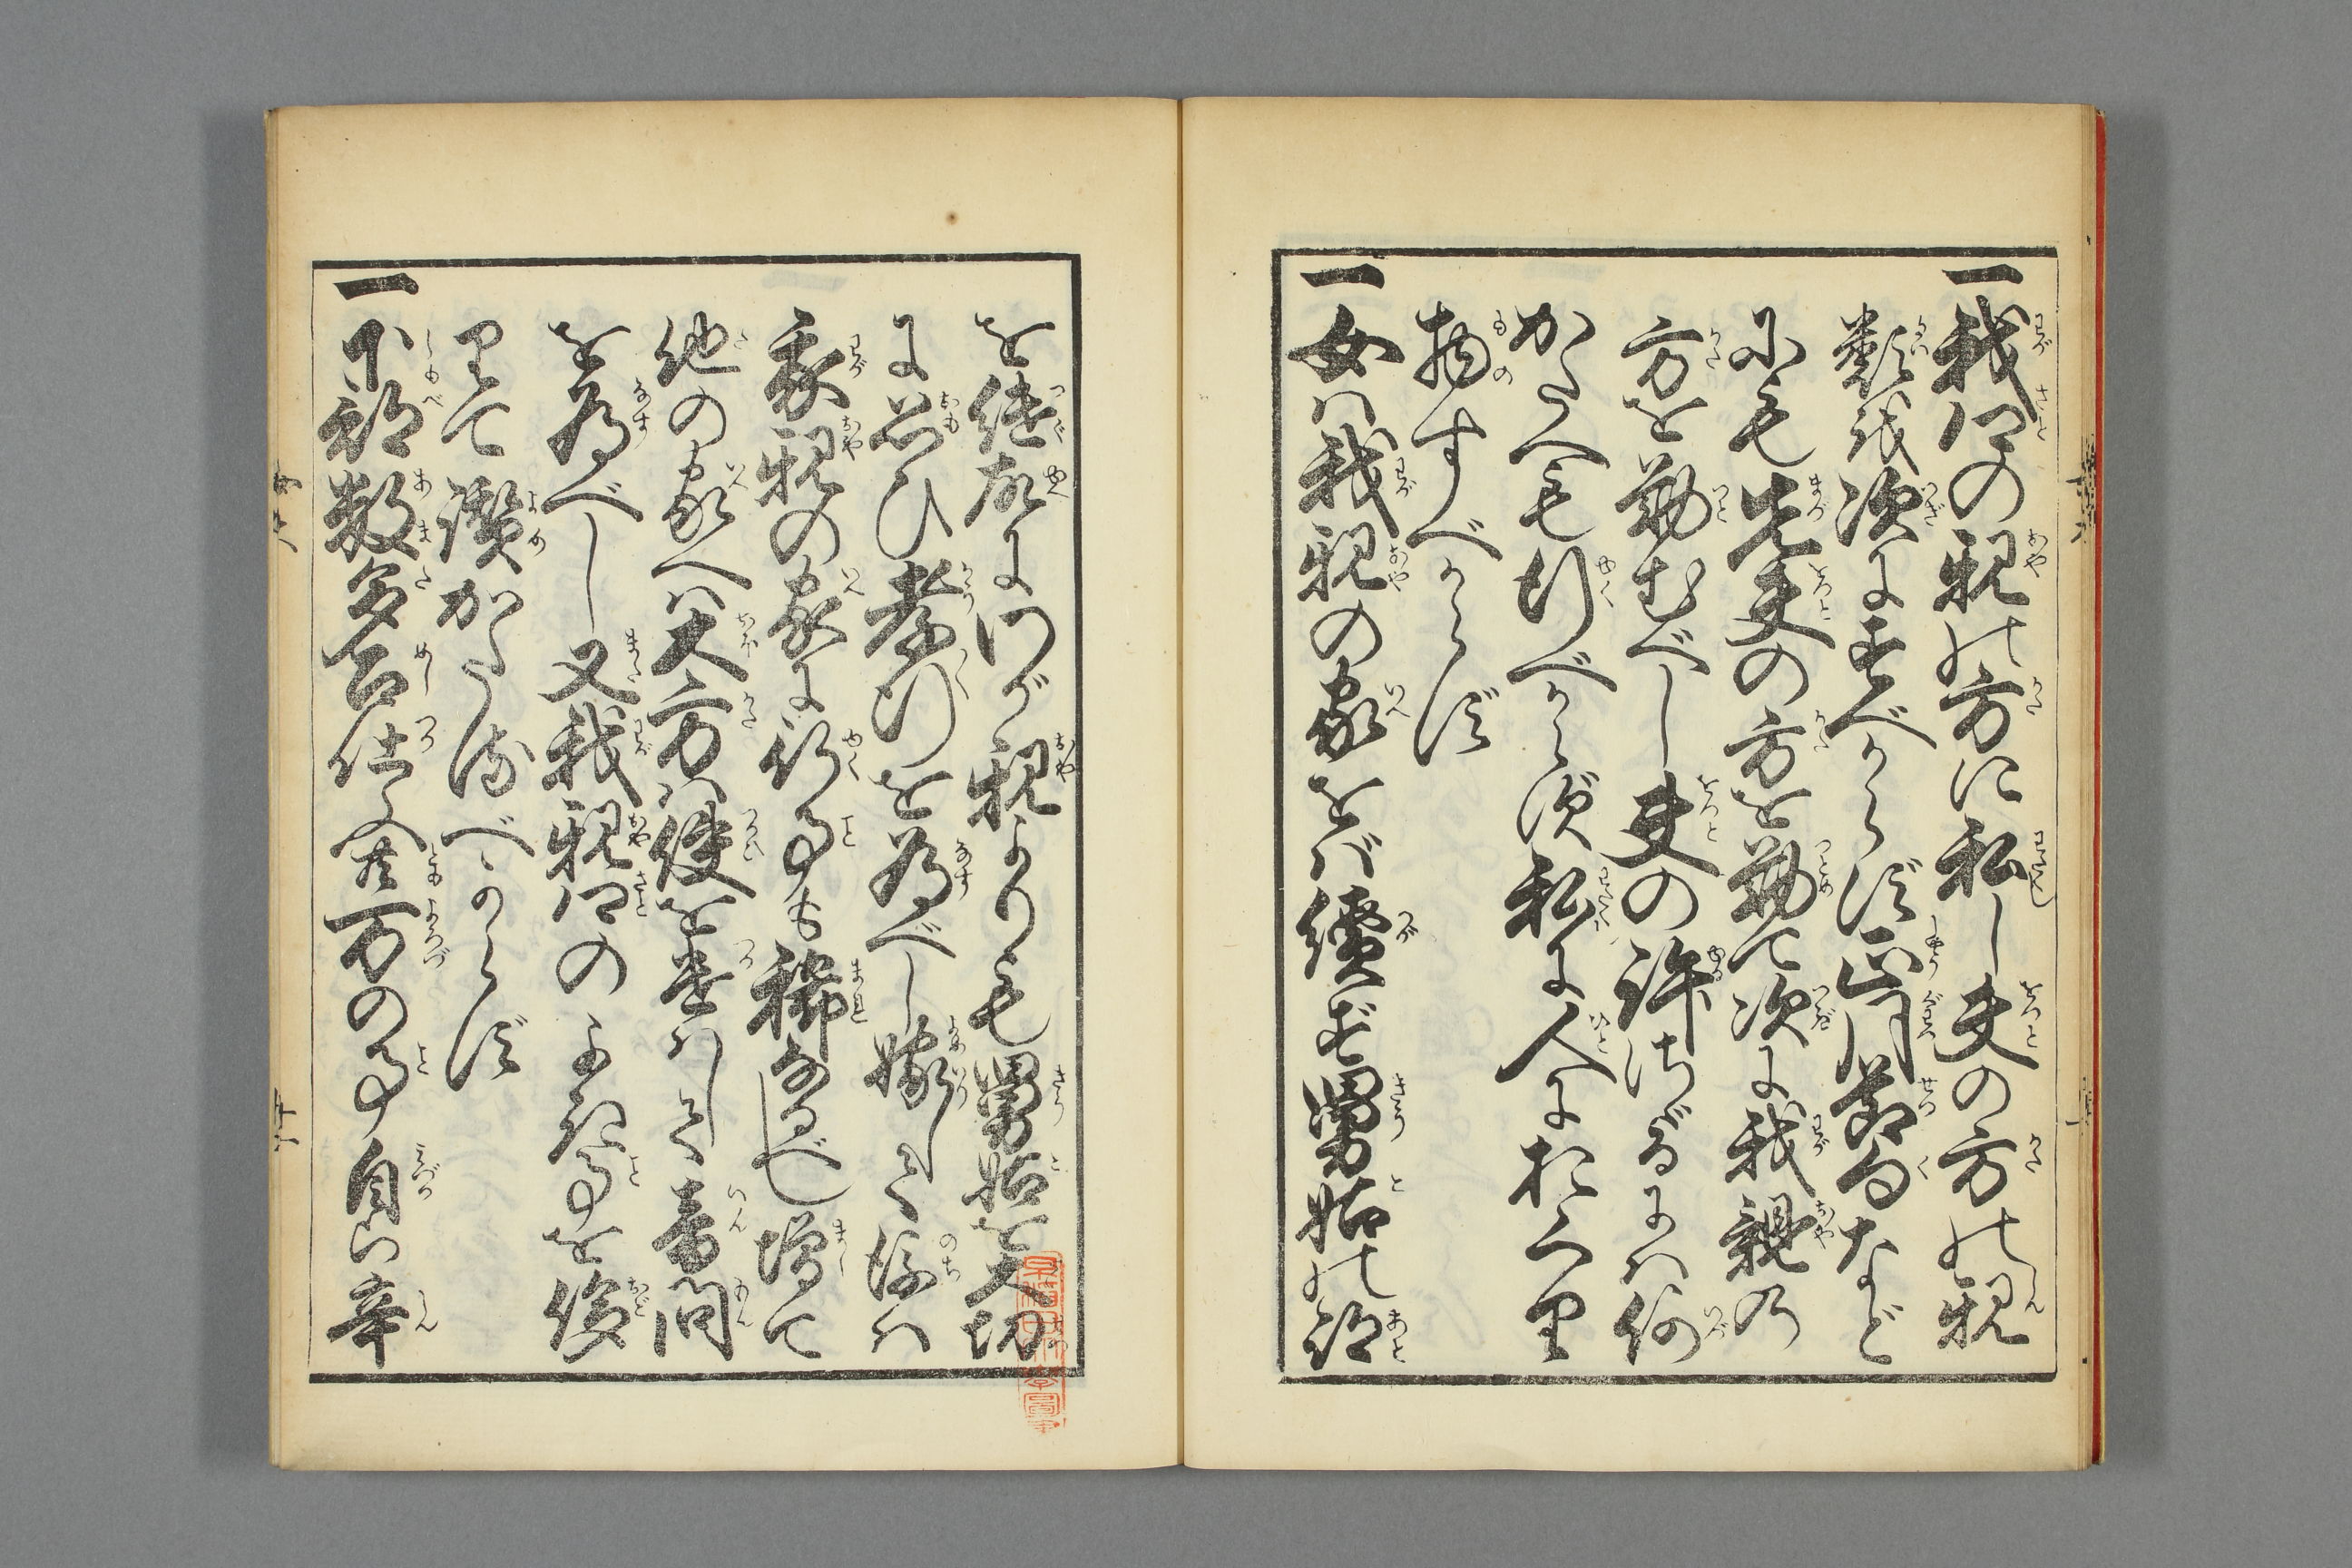 一我里の親の方に私し夫の方の親
類を次にすべからず正月節句など
にも先夫の方を勤て次に我親の
方を勤むべし夫の許さゞるには何
かたへも行べからず私に人におくり
物すべからず
一女は我親の家をば續ず舅姑の跡
を継故に我が親よりも舅姑を大切
に思ひ孝行を為べし嫁して後は
我親の家に行事も稀なるべし増て
他の家へは大方は使を遣はして音問
を為べし又我親里のよき事を誇
りて讃かたるべからず
一下部数多召仕ふ共万の事自から辛